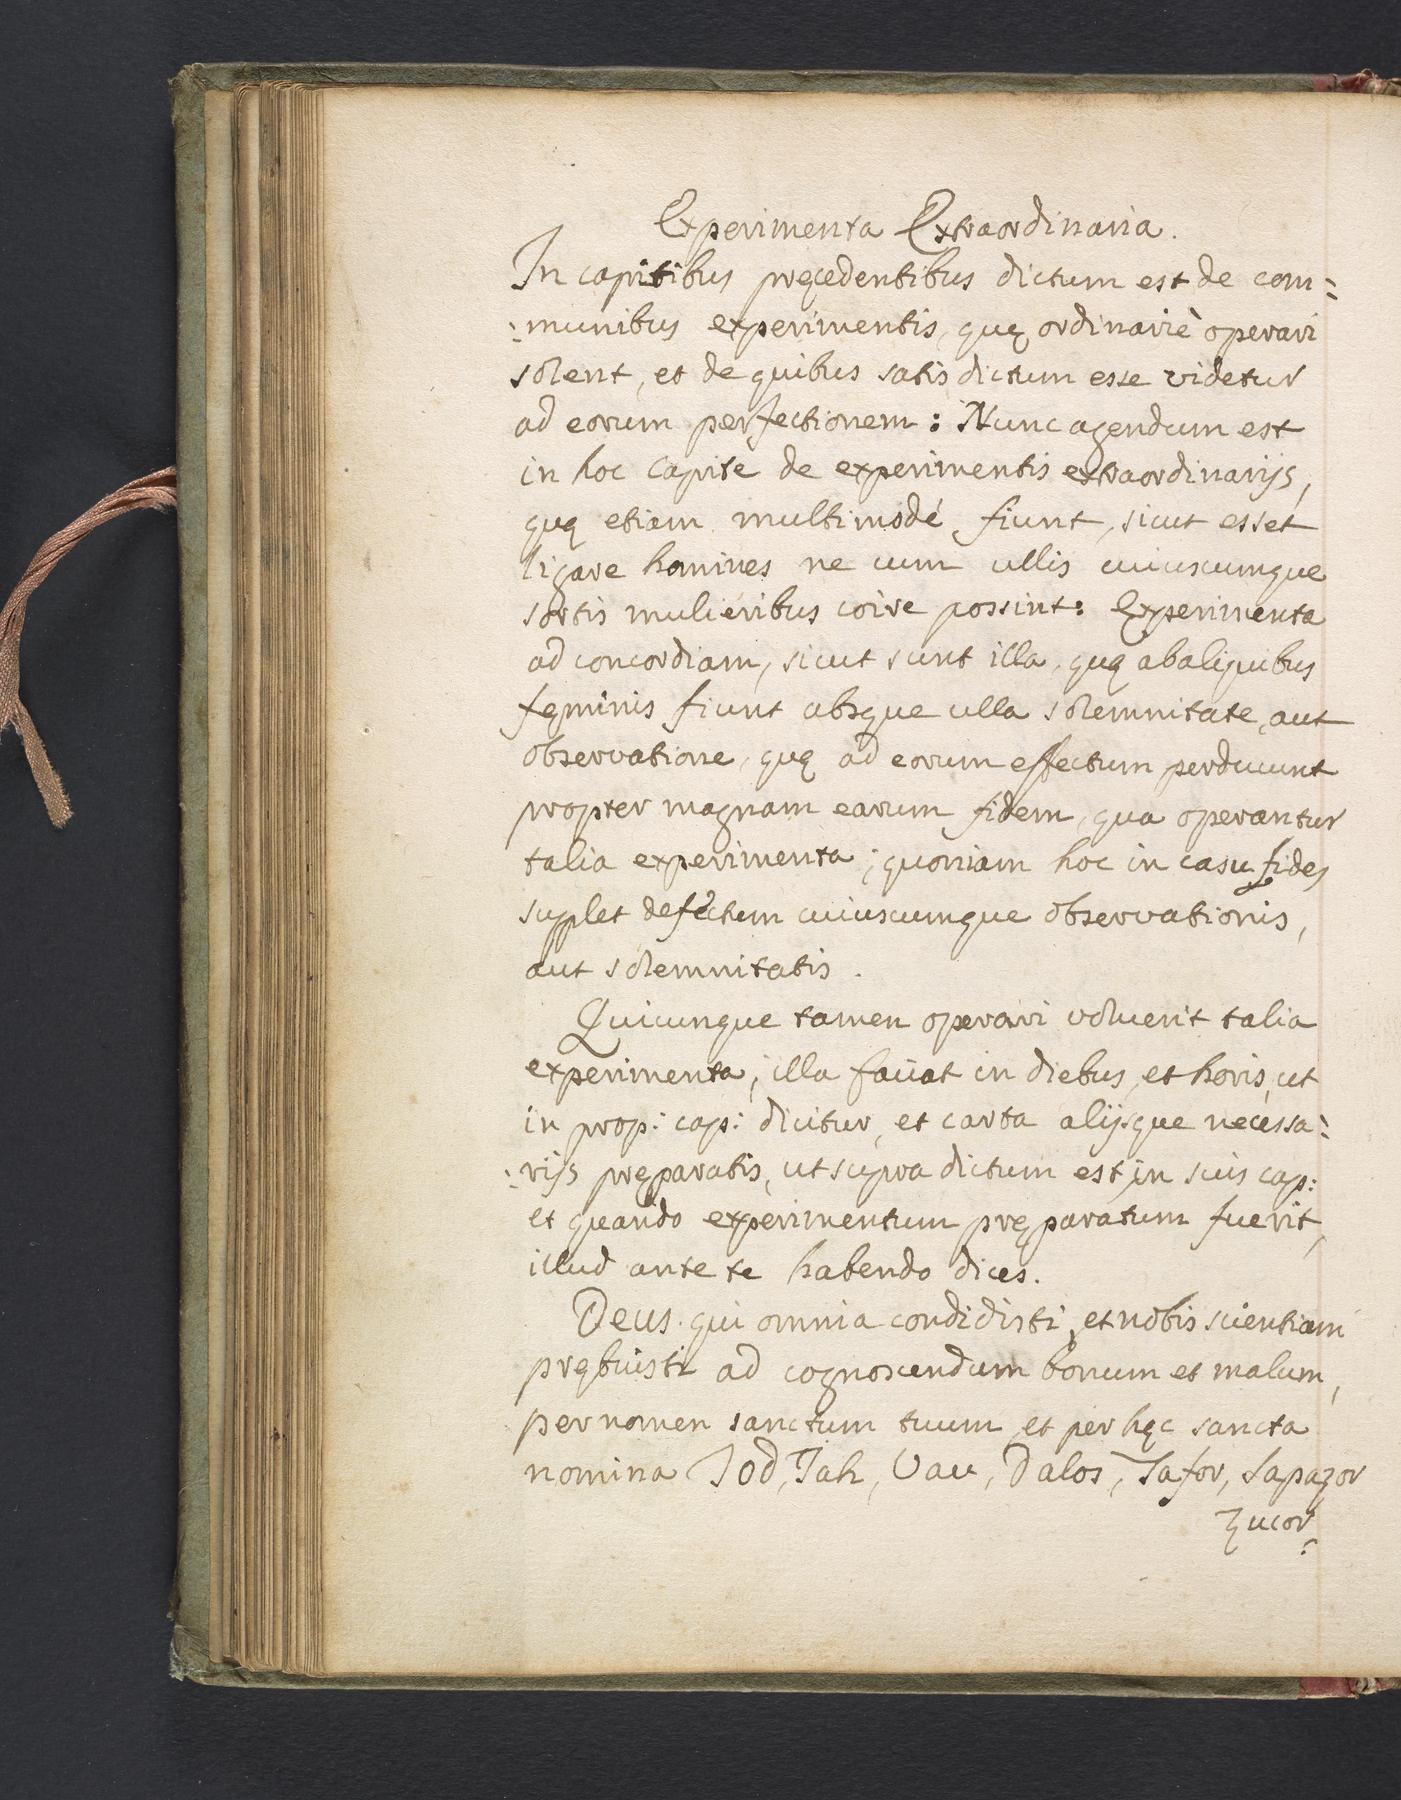 Experimenta Extraordinaria.
In capitibus pręcedentibus dictum est de com=
=munibus experimentis, quę ordinariè operari
solent, et de quibus satis dictum esse videtur
ad eorum perfectionem: Nunc agendum est
in hoc capite de experimentis extraordinarijs,
quę etiam multimodé fiunt, sicut esset
ligare homines ne cum ullis cuiuscumque
sortis mulieribus coire possint: Experimenta
ad concordiam, sicut sunt illa, quę ab aliquibus
fęminis fiunt absque ulla solemnitate, aut
observatione, quę ad eorum effectum perducunt
propter magnam earum fidem, qua operantur
talia experimenta; quoniam hoc in casu fides
supplet defectum cuiuscumque observationis,
aut solemnitatis.
Quicunque tamen operari voluerit talia
experimenta, illa faciat in diebus, et horis, ut
in prop: cap: dicitur, et carta alijsque necessa=
=rijs pręparatis, ut supra dictum est in suis cap:
et quando experimentum pręparatum fuerit,
illud ante te habendo dices.
Deus qui omnia condidisti, et nobis scientiam
prębuisti ad cognoscendum bonum et malum,
per nomen sanctum tuum et per hęc sancta
nomina Jod, Jah, Vau, Dalos, Tafor, Sapazor
Zucor=